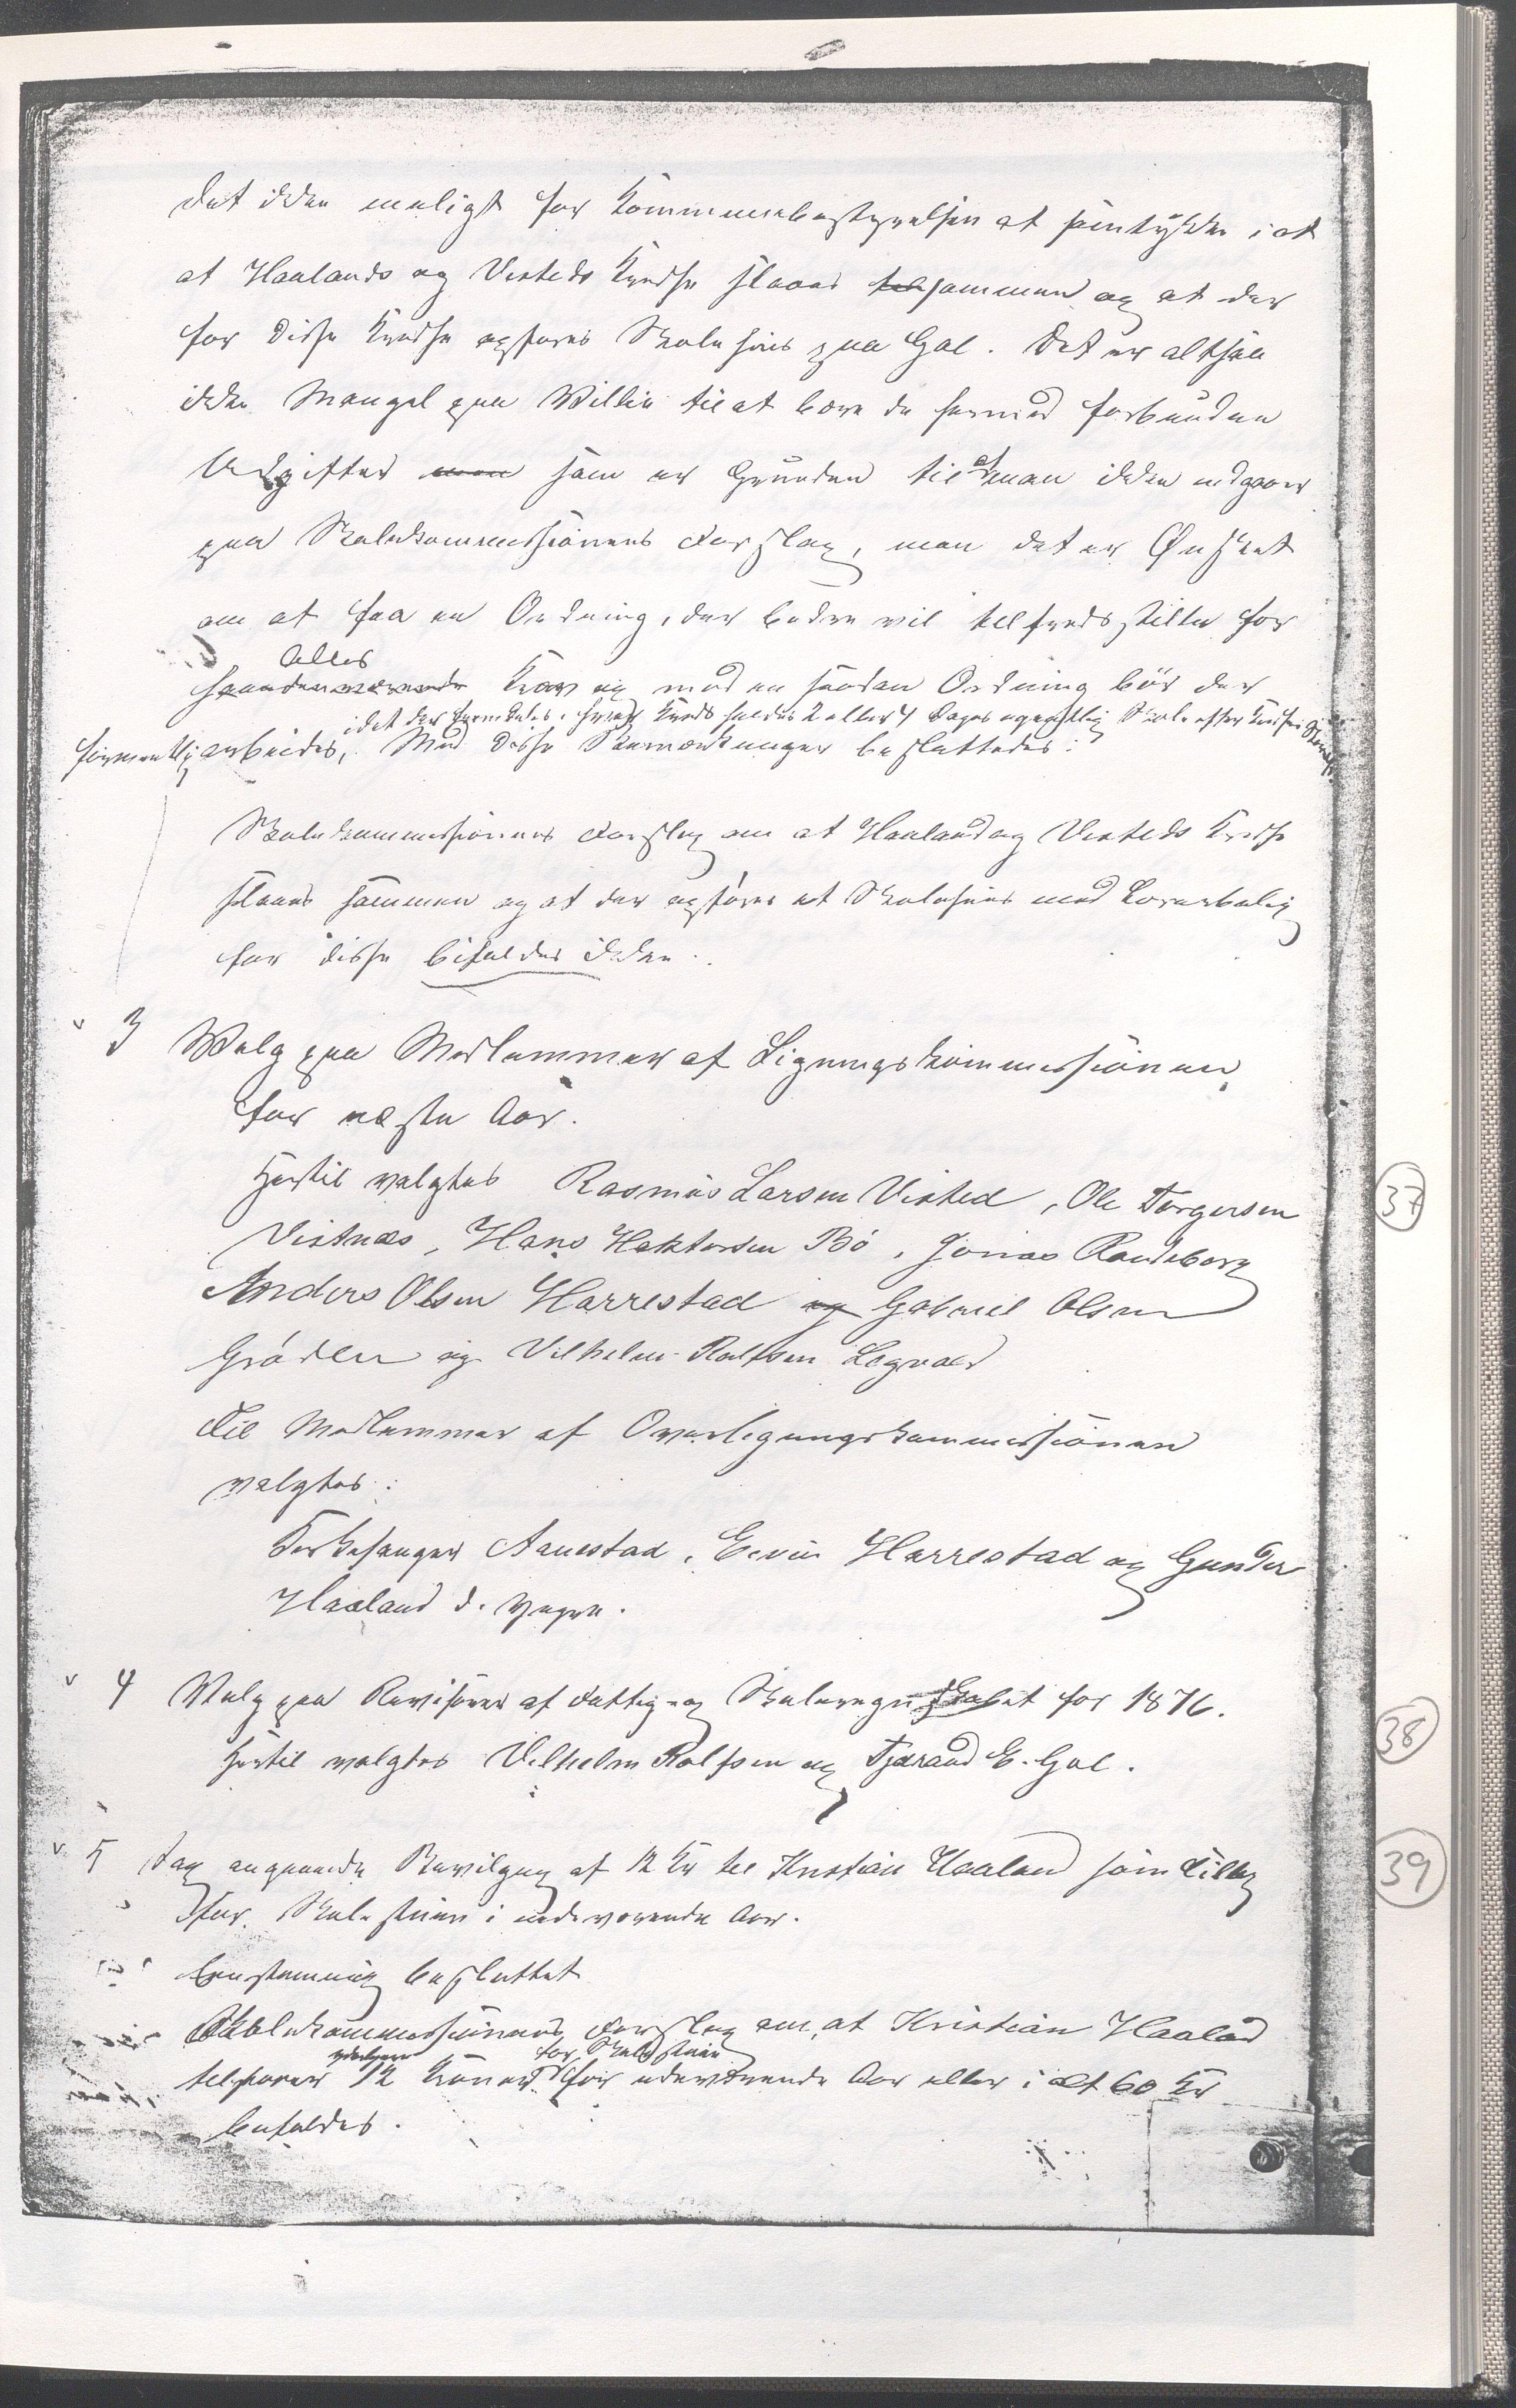 det ikke muligt for Kommunebestyrelsen at samtykke i at
at Haalands og Visteds Kredse slaaes sammen og at der
for disse Kredse opføres Skolehus paa Gol. Det er altsaa
ikke Mangel paa Villie til at bære de hermed forbundne
Udgifter men som er Grunden til at man ikke indgaar
paa Skolekommissionens Forslag, men det er Ønsket
om at faa en Ordning, der bedre vil tilfredsstille for
Alles
Krav og mod en saadan Ordning bør der
idet der hver Kreds holdes 2 eller 4 Dages Skole efter
arbeides, Med disse Bemærkninger besluttedes:
Skolekommissionens Forslag om at Haaland og Visteds Kredse
slaaes sammen og at der opføres et Skolehus med Lærerbolig
for disse bifaldes ikke.
3 Valg paa Medlemmer af Ligningskommissionen
for næste Aar.
Hertil valgtes Rasmus Larsen Visted, Ole Torgersen
Vistnæs, Hans Haktorsen Bö, Jonas Randeberg
Anders Olsen Harrestad og Gabriel Olsen
Gröden og Vilhelm Rolfsen Legvold
Til Medlemmer af Overligningskommissionen
valgtes:
Kirkesanger Aanestad, Harrestad og Gunder
Haaland d. yngre.
4 Valg paa Revisorer af Fattig- og Skoleregnskabet for 1876.
Hertil valgtes Vilhelm Rolfsen og Tjæraand E. Gol.
5 Sag angaaende Bevilgning af 12 Kr til Kristian Haaland som Tillæg
for Skolestuen i indeværende Aar.
Enstemmig besluttet
Skolekommissionens Forslag om, at Kristian Haaland
yderligere for Skolestuen
tilstaaes 12 Kroner for indeværende Aar eller i alt 60 Kr
bifaldes.
37
38
39